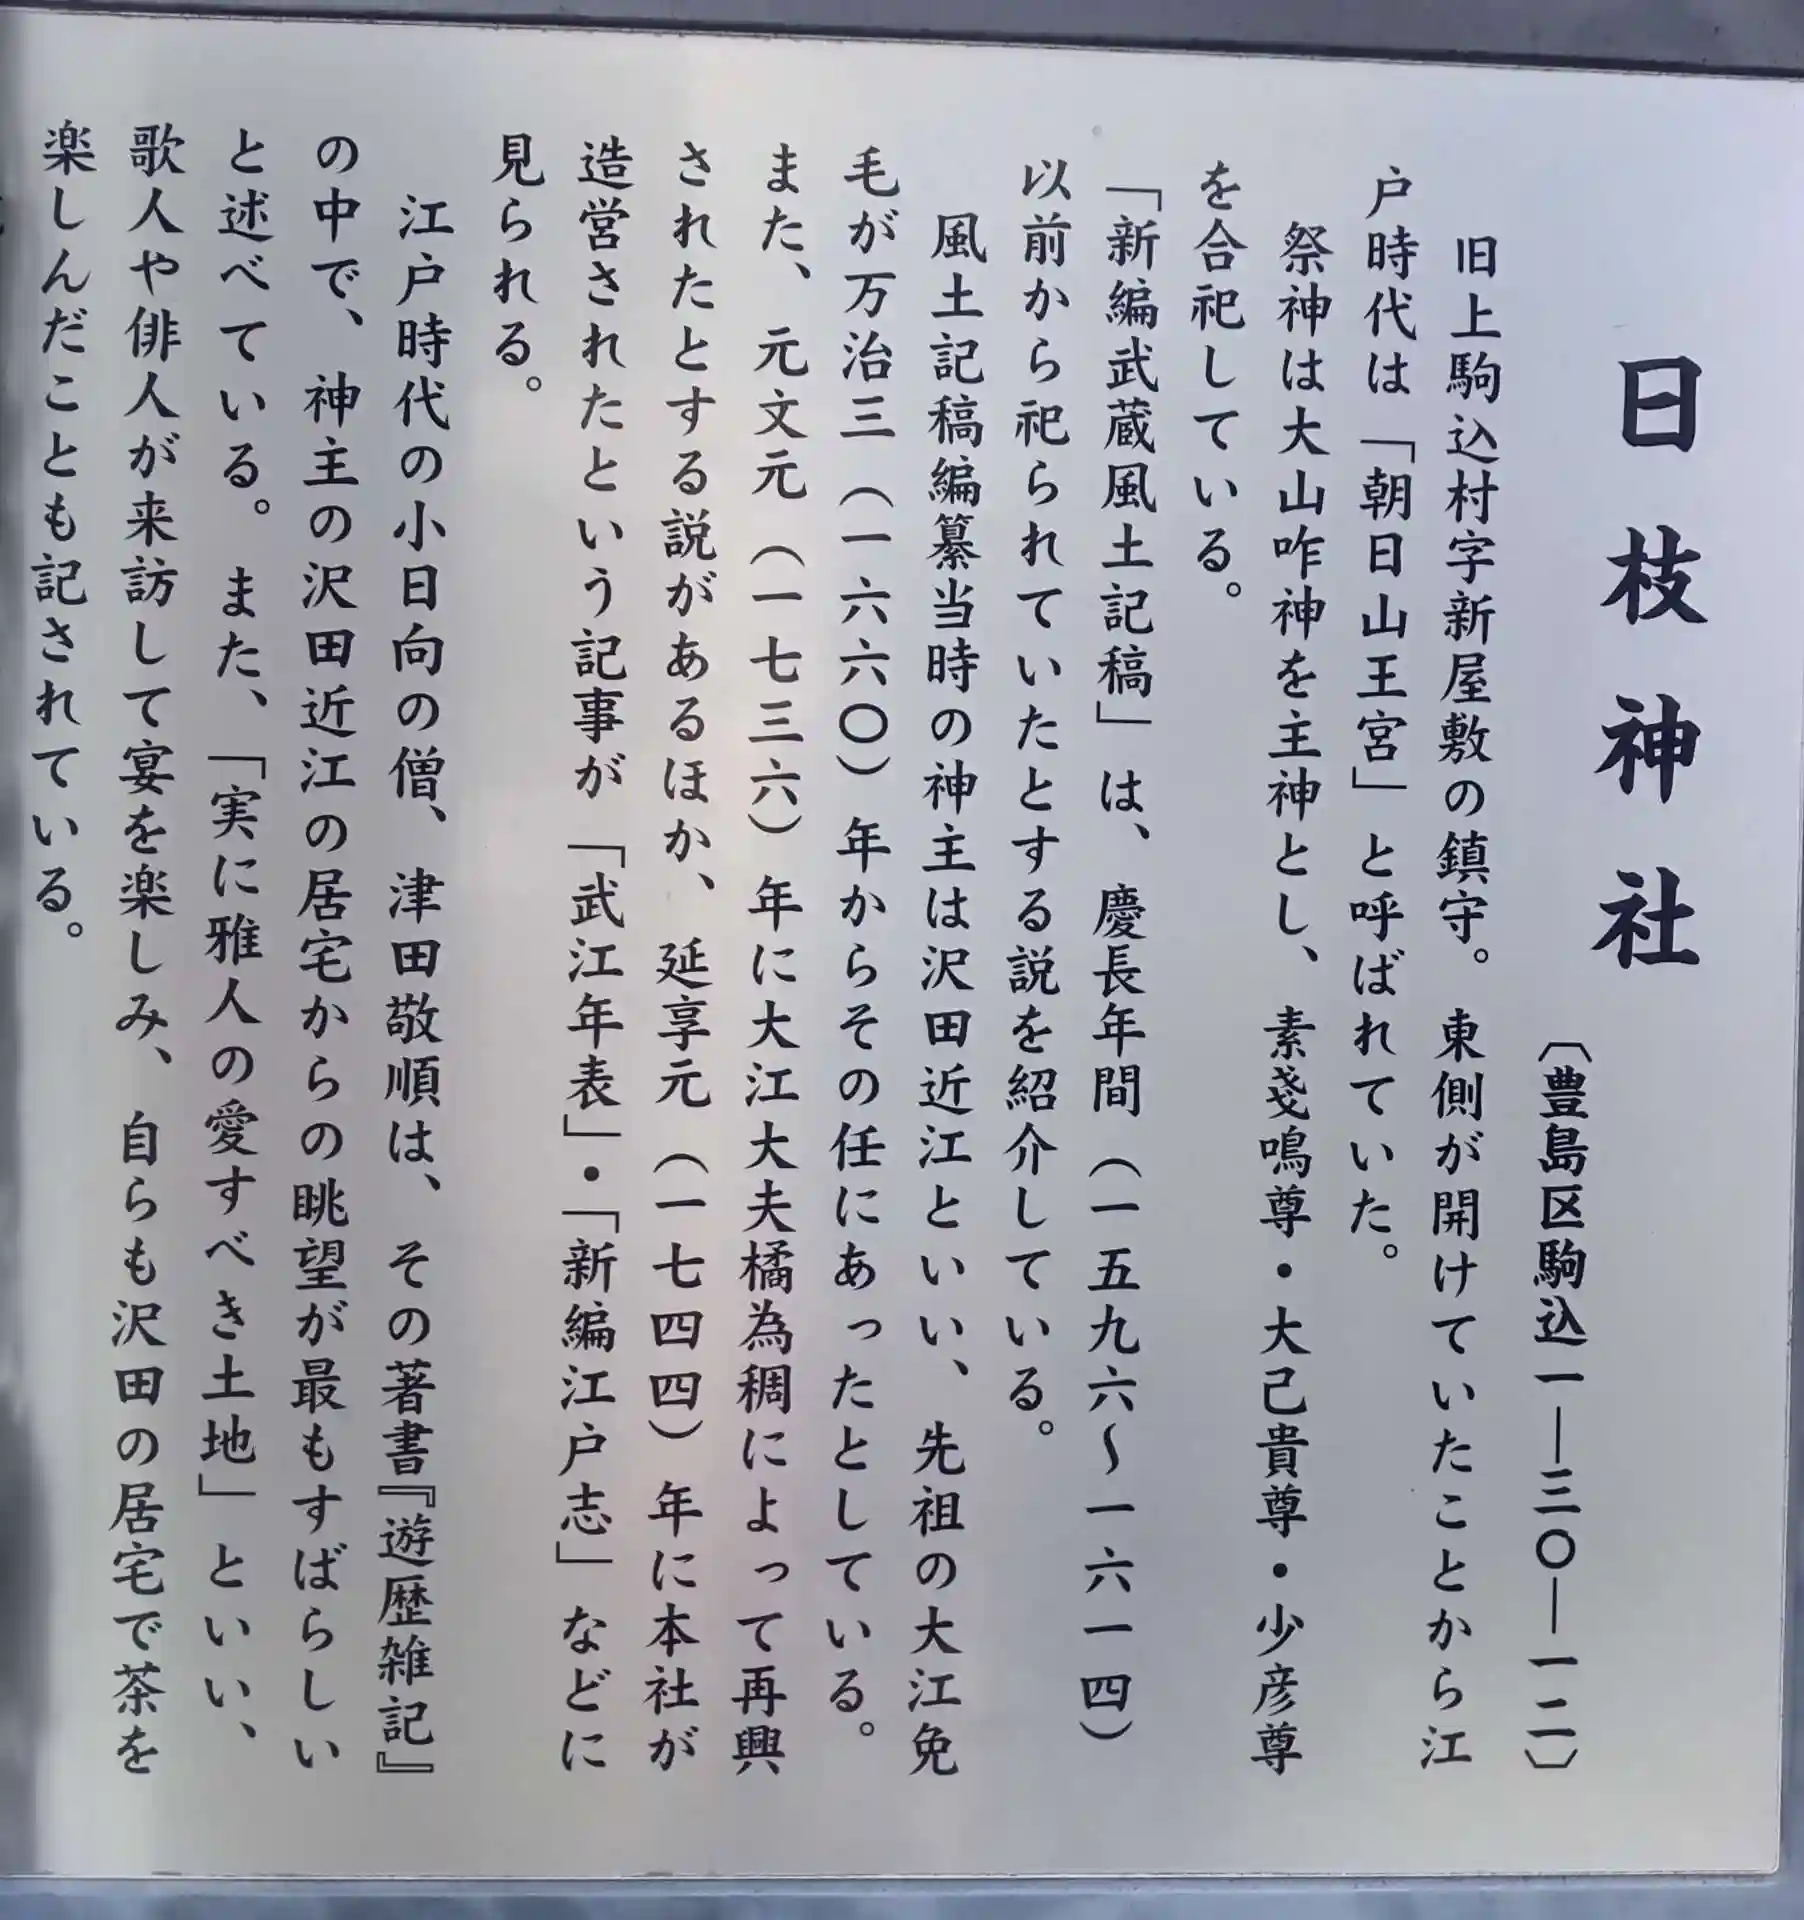 日枝神社
〔豊島区駒込一―三〇―一二〕
旧上駒込村字新屋敷の鎮守。東側が開けていたことから江
戸時代は「朝日山王宮」と呼ばれていた。
祭神は大山咋神を主神とし、素戔鳴尊・大己貴尊・少彦尊
を合祀している。
「新編武蔵風土記稿」は、慶長年間（一五九六～一六一四）
以前から祀られていたとする説を紹介している。
風土記稿編纂当時の神主は沢田近江といい、先祖の大江免
毛が万治三（一六六〇）年からその任にあったとしている。
また、元文元（一七三六）年に大江大夫橘為稠によって再興
されたとする説があるほか、延享元（一七四四）年に本社が
造営されたという記事が「武江年表」・「新編江戸志」などに
見られる。
江戸時代の小日向の僧、津田敬順は、その著書『遊歴雑記』
の中で、神主の沢田近江の居宅からの眺望が最もすばらしい
と述べている。また、「実に雅人の愛すべき土地」といい、
歌人や俳人が来訪して宴を楽しみ、自らも沢田の居宅で茶を
楽しんだことも記されている。